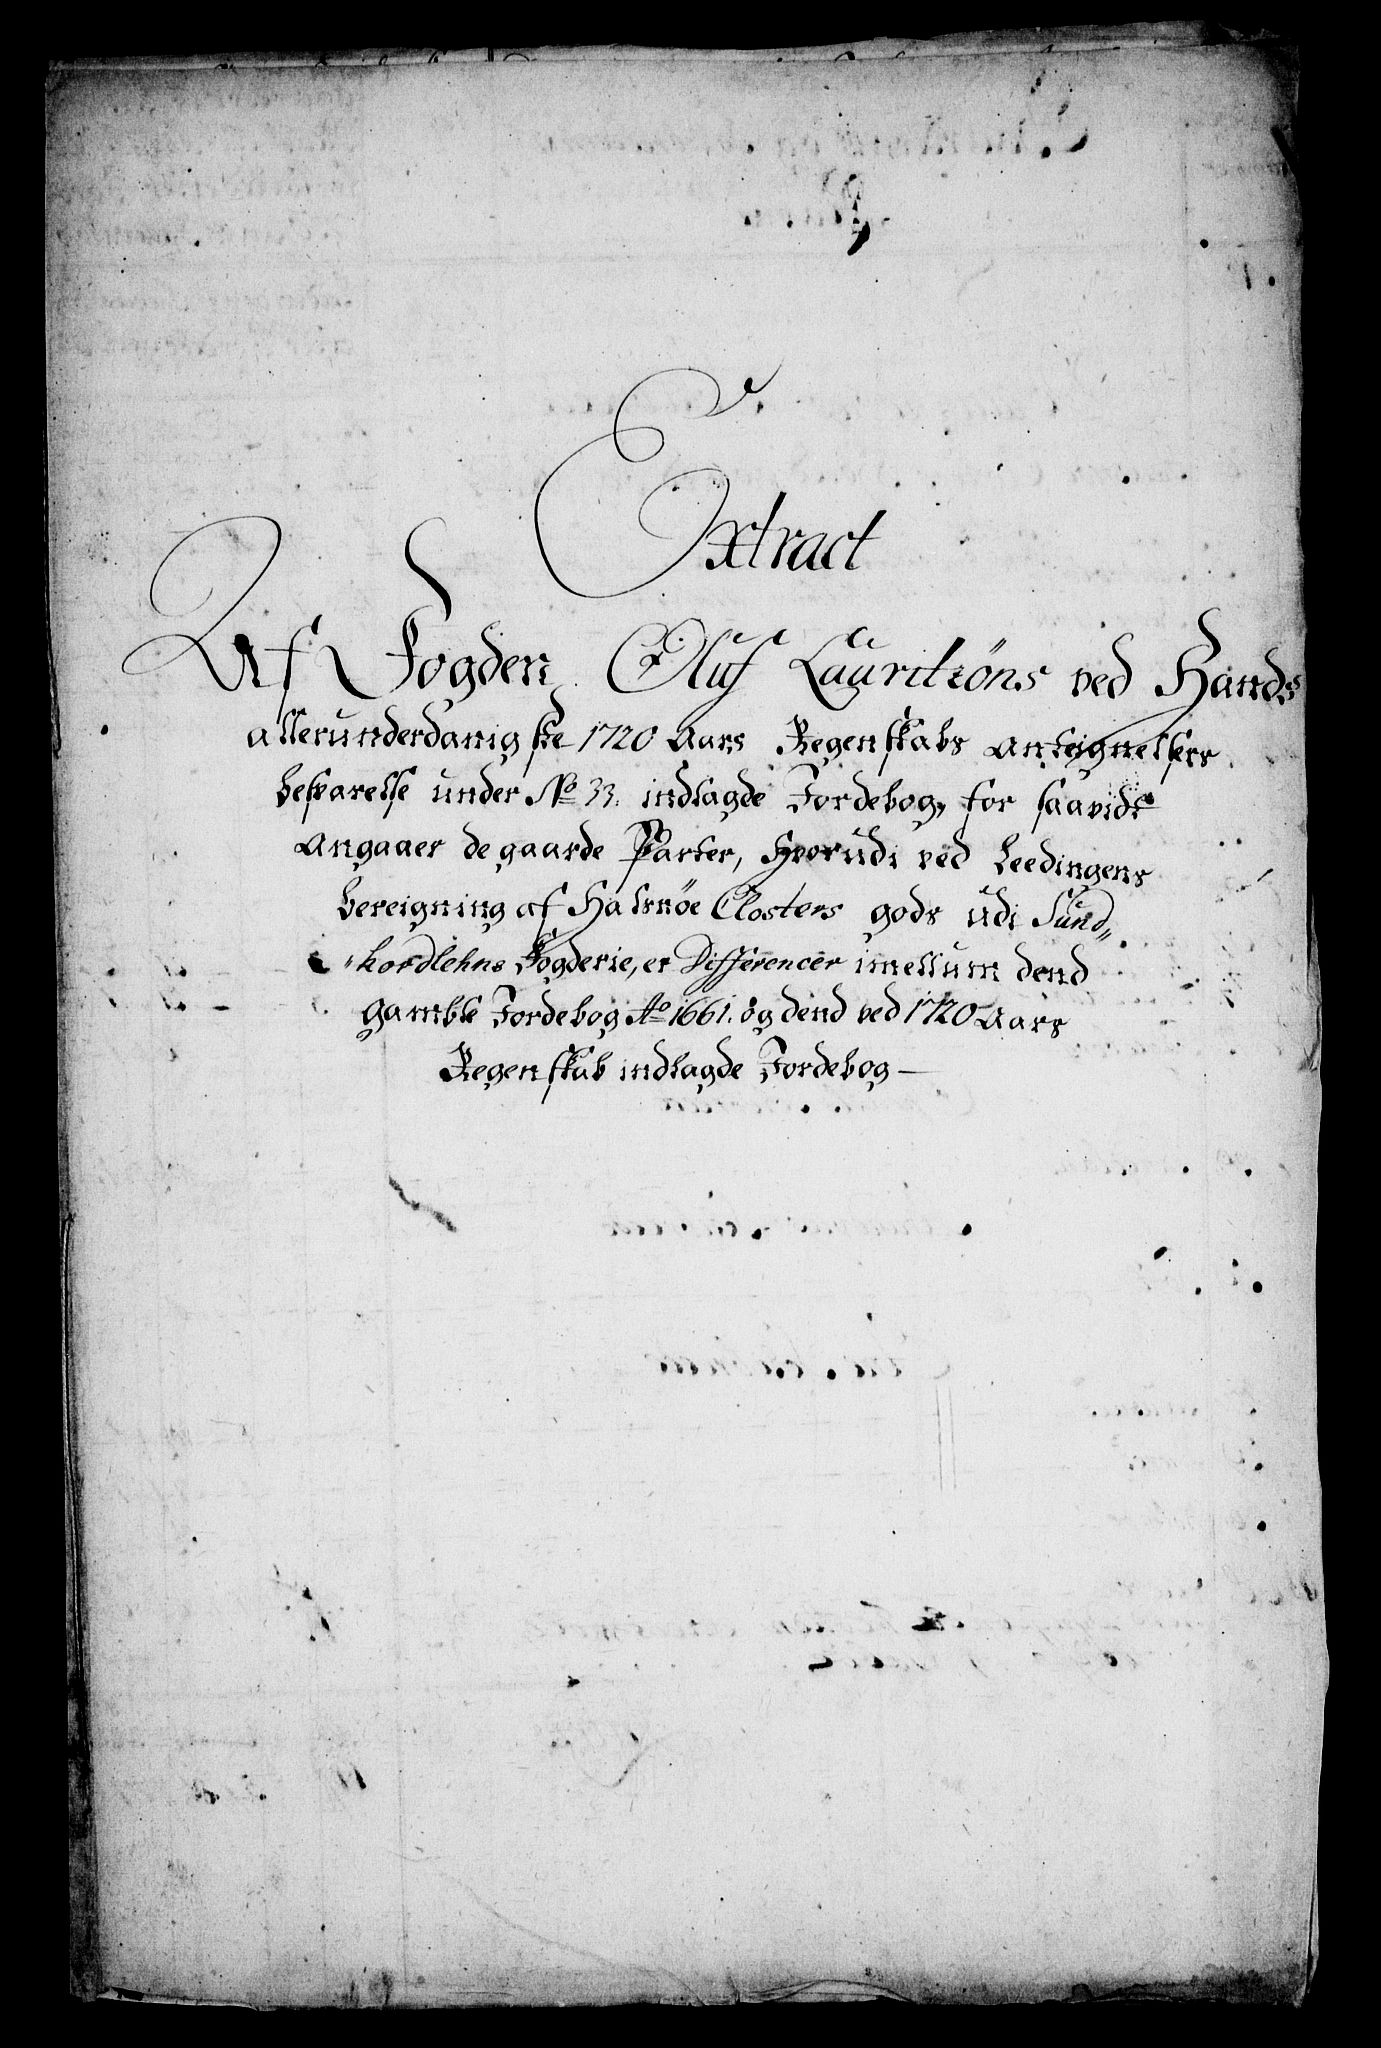 Extract
Af Fogden Oluf Lauritzöns ved Hands
allerunderdanigste 1720 Aars Regenskabs Anteignelsers
besvarelse under No 33. indlagde Jordebog, for saavidt
Angaaer de gaarde Parter, hvorudi ved Leedingens
bereigning af Halsnöe Closters gods udi Sund„
„hordlehns Fogderie, er Differencer imellum dend
gamble Jordebog Ao 1661. og dend ved 1720 Aars
Regenskab indlagde Jordebog —